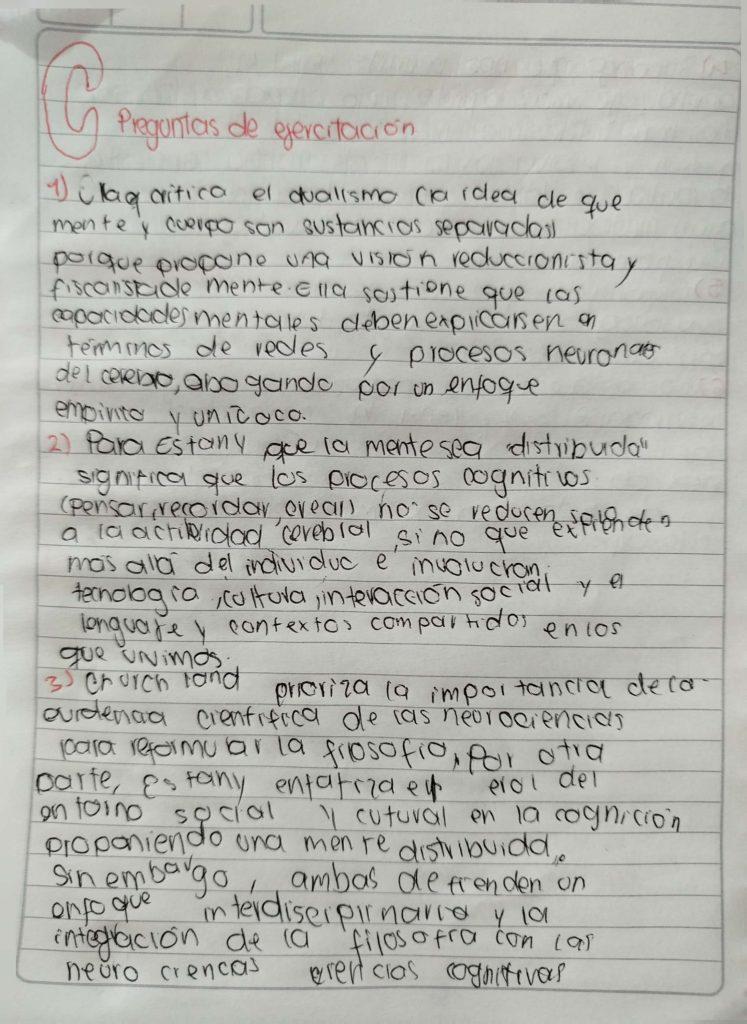 C
Preguntas de ejercitación
1) Clag critica el dualismo (la idea de que
mente y cuerpo son sustancias separadas)
porque propone una visión reduccionista y
fiscanstade mente. Ella sostiene que las
capacidades mentales deben explicarsen en
términos de redes y procesos neuronas
del cerebro, abogando por un enfoque
empirito y unicoco.
2) Para Estany que la mente sea distribuda"
significa que los procesos cognitivos
(pensar, recordar, crear) no se reducen solo
a la actividad cerebral, si no que extienden
mas allá del individuo e involucran
tecnología, cultura, interacción social y el
lenguaje y contextos compartidos en los
que vivimos.
3) Churchland prioriza la importancia de la
científica de las neurociencias
para reformular la filosofia, Por otra
parte, Estany enfatiza el rol del
entorno social y cutural en la cognición
proponiendo una mente distribuida,
sin embargo, ambas defienden un
enfoque interdisciplinario y la
integración de la filosofia con las
neuro ciencas ciencias cognitivas